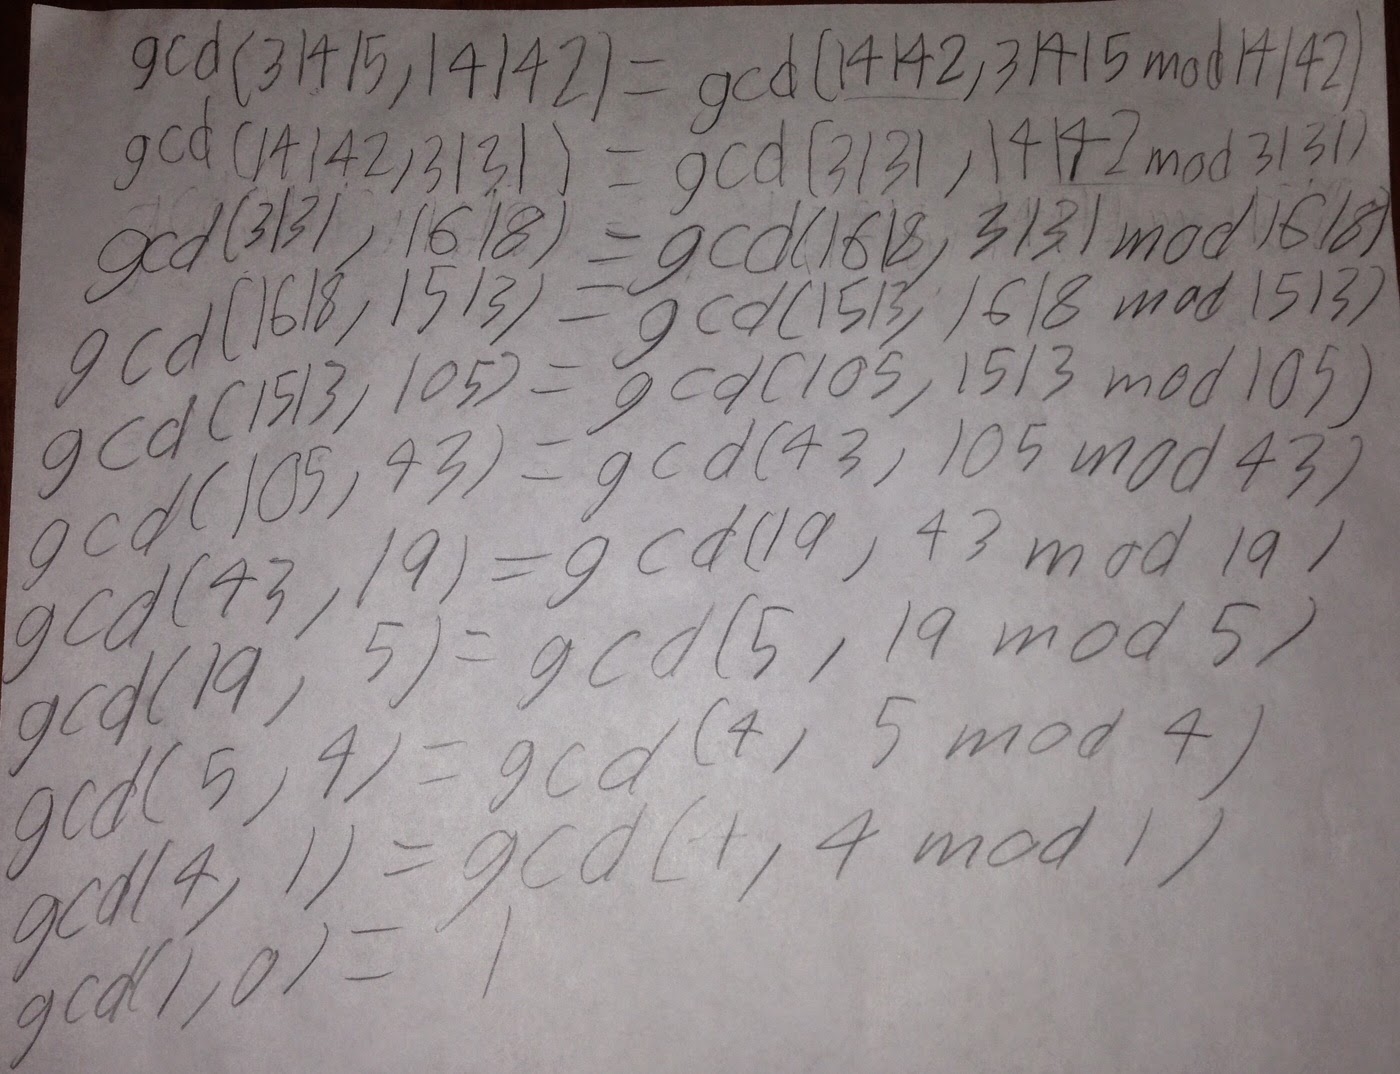 gcd(31415, 14142) = gcd(14142, 31415 mod 14142)
gcd(14142, 3131) = gcd(3131, 14142 mod 3131)
gcd(3131, 1618) = gcd(1618, 3131 mod 1618)
gcd(1618, 1513) = gcd(1513, 1618 mod 1513)
gcd(1513, 105) = gcd(105, 1513 mod 105)
gcd(105, 43) = gcd(43, 105 mod 43)
gcd(43, 19) = gcd(19, 43 mod 19)
gcd(19, 5) = gcd(5, 19 mod 5)
gcd(5, 4) = gcd(4, 5 mod 4)
gcd(4, 1) = gcd(1, 4 mod 1)
gcd(1, 0) = 1